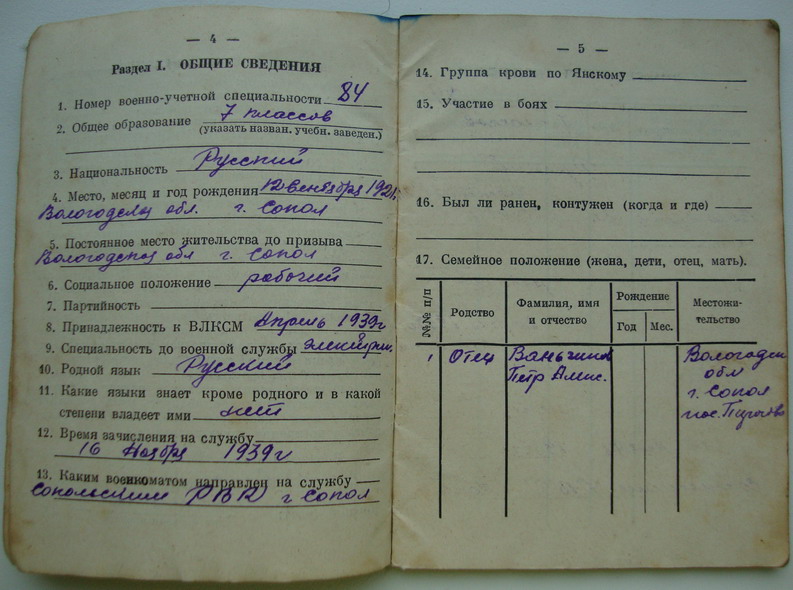 — 4 —
Раздел I. ОБЩИЕ СВЕДЕНИЯ
1. Номер военно-учетной специальности 84
2. Общее образование 7 классов
(указать назван. учебн. заведен.)
3. Национальность Русский
4. Место, месяц и год рождения 12 Сентября 1921
Вологодск. обл. г. Сокол
5. Постоянное место жительства до призыва
Вологодская обл г. Сокол
6. Социальное положение рабочий
7. Партийность
8. Принадлежность к ВЛКСМ Апрель 1939г
9. Специальность до военной службы электрик.
10. Родной язык Русский
11. Какие языки знает кроме родного и в какой
степени владеет ими нет
12. Время зачисления на службу
16 Ноября 1939г
13. Каким военкоматом направлен на службу
Сокольским РВК г Сокол
— 5 —
14. Группа крови по Янскому
15. Участие в боях
16. Был ли ранен, контужен (когда и где)
17. Семейное положение (жена, дети, отец, мать).
№№ п/п
Родство
Фамилия, имя
и отчество
Рождение
Год
Мес.
Местожи-
тельство
1 Отец
Ваньчинов
Петр Алекс.
Вологодск
обл
г. Сокол
пос.